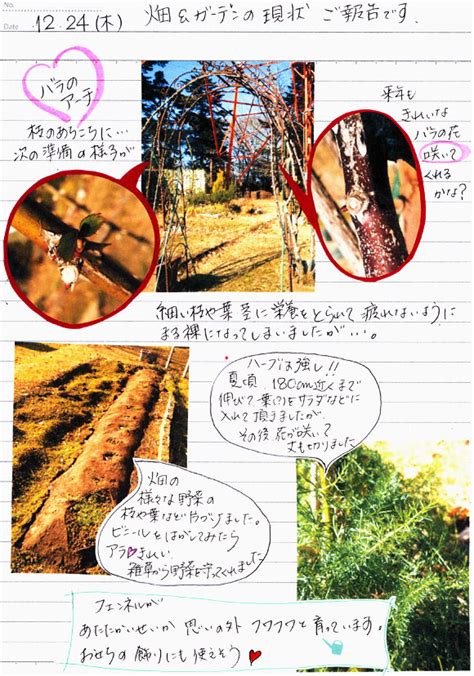 No.
Date 12.24(木)
畑&ガーデンの現状 ご報告です.
バラの
アーチ
枝のあちこちに…
次の準備の様子が
来年も
きれいな
バラの花
咲いて
くれる
かな?
細い枝や葉茎に栄養をとられて疲れないように
まる裸になってしまいましたが….
ハーブは強し!!
夏頃 180cm近くまで
伸びて葉(?)をサラダなどに
入れて頂きましたが
その後 花が咲いて
丈も切りました
畑の
様々な野菜の
枝や葉はどかづけました。
ビニールをはがしてみたら
アラ♥きれい
雑草から野菜を守ってくれました
フェンネルが
あたたかいせいか 思いの外 フワフワと育っています。
おせちの飾りにも使えそう♥